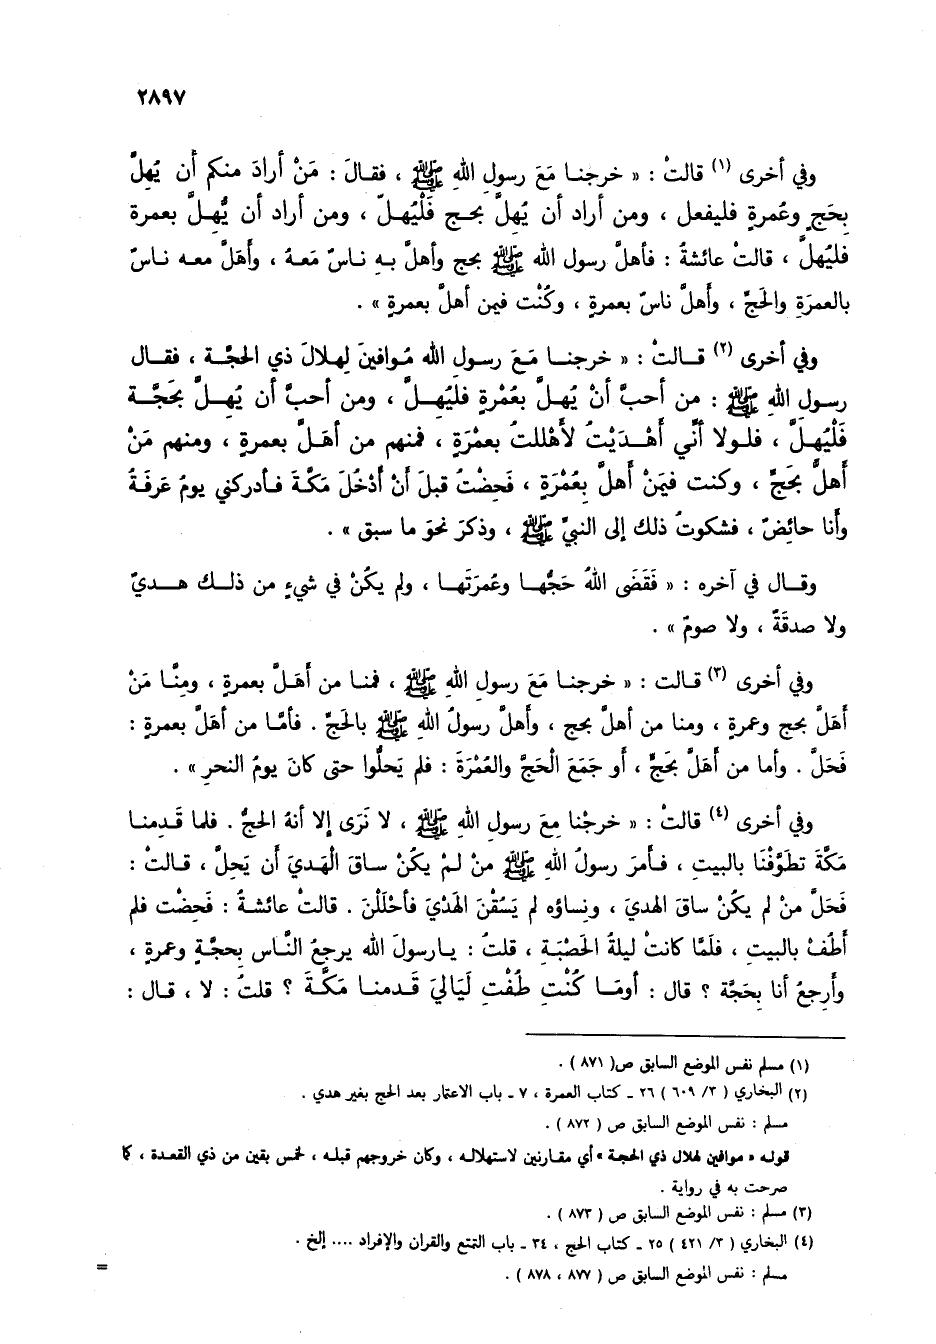 ٢٨٩٧
وفي أخرى (١) قالتْ : « خرجنا مَعَ رسولِ اللهِ ﷺ ، فقالَ : مَنْ أرادَ منكم أن يُهلَّ
بِحَجٍ وعُمرةٍ فليفعل ، ومن أراد أن يُهلَّ بحـج فَلْيُهلّ ، ومن أراد أن يُّهلَّ بعمرة
فليُهلَّ ، قالتْ عائشةُ : فأهلَّ رسول الله ﷺ بحج وأهلَّ بـهِ نـاسٌ مَعـهُ ، وأهَلَّ معـه ناسٌ
بالعمرَةِ والحَجِّ ، وأهلَّ ناسٌ بعمرةٍ ، وكُنْت فيمن أهلَّ بعمرةٍ » .
وفي أخرى (٢) قـالتْ : « خرجنـا مَـعَ رسـولِ الله مُـوافينَ لِهلالَ ذي الحجَّـة ، فقـال
رسـول اللهِ ﷺ : من أحبَّ أنْ يُهلَّ بعُمْرةٍ فليُهِـلَّ ، ومن أحبَّ أن يُهِـلَّ بحَجَّـة
فَلْيُهِلَّ ، فلـولا أنّي أهْـدَيْتُ لأهْللتُ بعمْرَةٍ ، فمنهم من أهَـلَّ بعمرةٍ ، ومنهم مَنْ
أهلَّ بحَجٍّ ، وكنت فيمَنْ أهلَّ بِعُمْرَةٍ ، فَحِضْتُ قبلَ أنْ أدْخُلَ مَكَّـةَ فـأدركني يومُ عَرفَةَ
وأنا حائِضٌ ، فشكوتُ ذلك إلى النبيِّ ﷺ ، وذكرَ نحوَ ما سبق » .
وقـال في آخره : « فَقَضَى اللهُ حَجَّهـا وعُمرَتَهـا ، ولم يكُنْ في شيءٍ من ذلـك هـديٌ
ولا صدقَةٌ ، ولا صومٌ » .
وفي أخرى (٣) قـالت : « خرجنـا مَعَ رسولِ اللهِ ﷺ ، فمنـا من أهَـلَّ بعمرةٍ ، ومِنَّـا مَنْ
أهَلَّ بحج وعمرةٍ ، ومنا من أهلَّ بحج ، وأهلَّ رسولُ اللهِ ﷺ بالحَجِّ . فأمَّا من أهلَّ بعمرةٍ :
فَحَلَّ . وأما من أهَلَّ بحَجٍّ ، أو جَمَعَ الْحَجَّ والعُمْرَةَ : فلم يَحلُّوا حتى كانَ يومُ النحرِ » .
وفي أخرى (٤) قالتْ : « خرجْنا مِعَ رسولِ اللهِ ﷺ ، لا نَرَى إلا أنهُ الحجُّ . فلما قَـدِمنـا
مَكَّةَ تطَوَّفْنَا بالبيتِ ، فـأمَرَ رسولُ اللهِ ﷺ منْ لمْ يكُنْ سـاقَ الْهديَ أن يَحِلَّ ، قـالتْ :
فَحَلَّ منْ لم يكُنْ ساقَ الهديَ ، ونساؤه لم يَسُقْنَ الهَدْيَ فأحْلَلْنَ . قالتْ عائشةُ : فَحِضْت فلم
أطُفْ بالبيتِ ، فلَمَّا كانتْ ليلةُ الحَصْبَةِ ، قلتُ : يـارسولَ الله يرجعُ النَّاس بحجَّةٍ وعمرةٍ ،
وأرجِعُ أنا بِحَجَّة ؟ قال : أومَـا كُنْتِ طُفْتِ لَيَاليَ قَـدمنـا مَكَّةَ ؟ قلتُ : لا ، قـال :
(١) مسلم نفس الموضع السابق ص( ٨٧١ ) .
(٢) البخاري ( ٣/ ٦٠٩ ) ٢٦ ـ كتاب العمرة ، ٧ ـ باب الاعتمار بعد الحج بغير هدي .
مسلم : نفس الموضع السابق ص ( ٨٧٢ ) .
قولـه « موافين لهلال ذي الحجـة » أي مقـارنين لاستهلالـه ، وكان خروجهم قبلـه ، لخمس بقين من ذي القعـدة ، كا
صرحت به في رواية .
(٣) مسلم : نفس الموضع السابق ص ( ٨٧٣ ) .
(٤) البخاري ( ٣/ ٤٢١ ) ٢٥ ـ كتاب الحج ، ٣٤ ـ باب التمتع والقران والإفراد .... إلخ .
مسلم : نفس الموضع السابق ص ( ٨٧٧ ، ٨٧٨ ) .
=